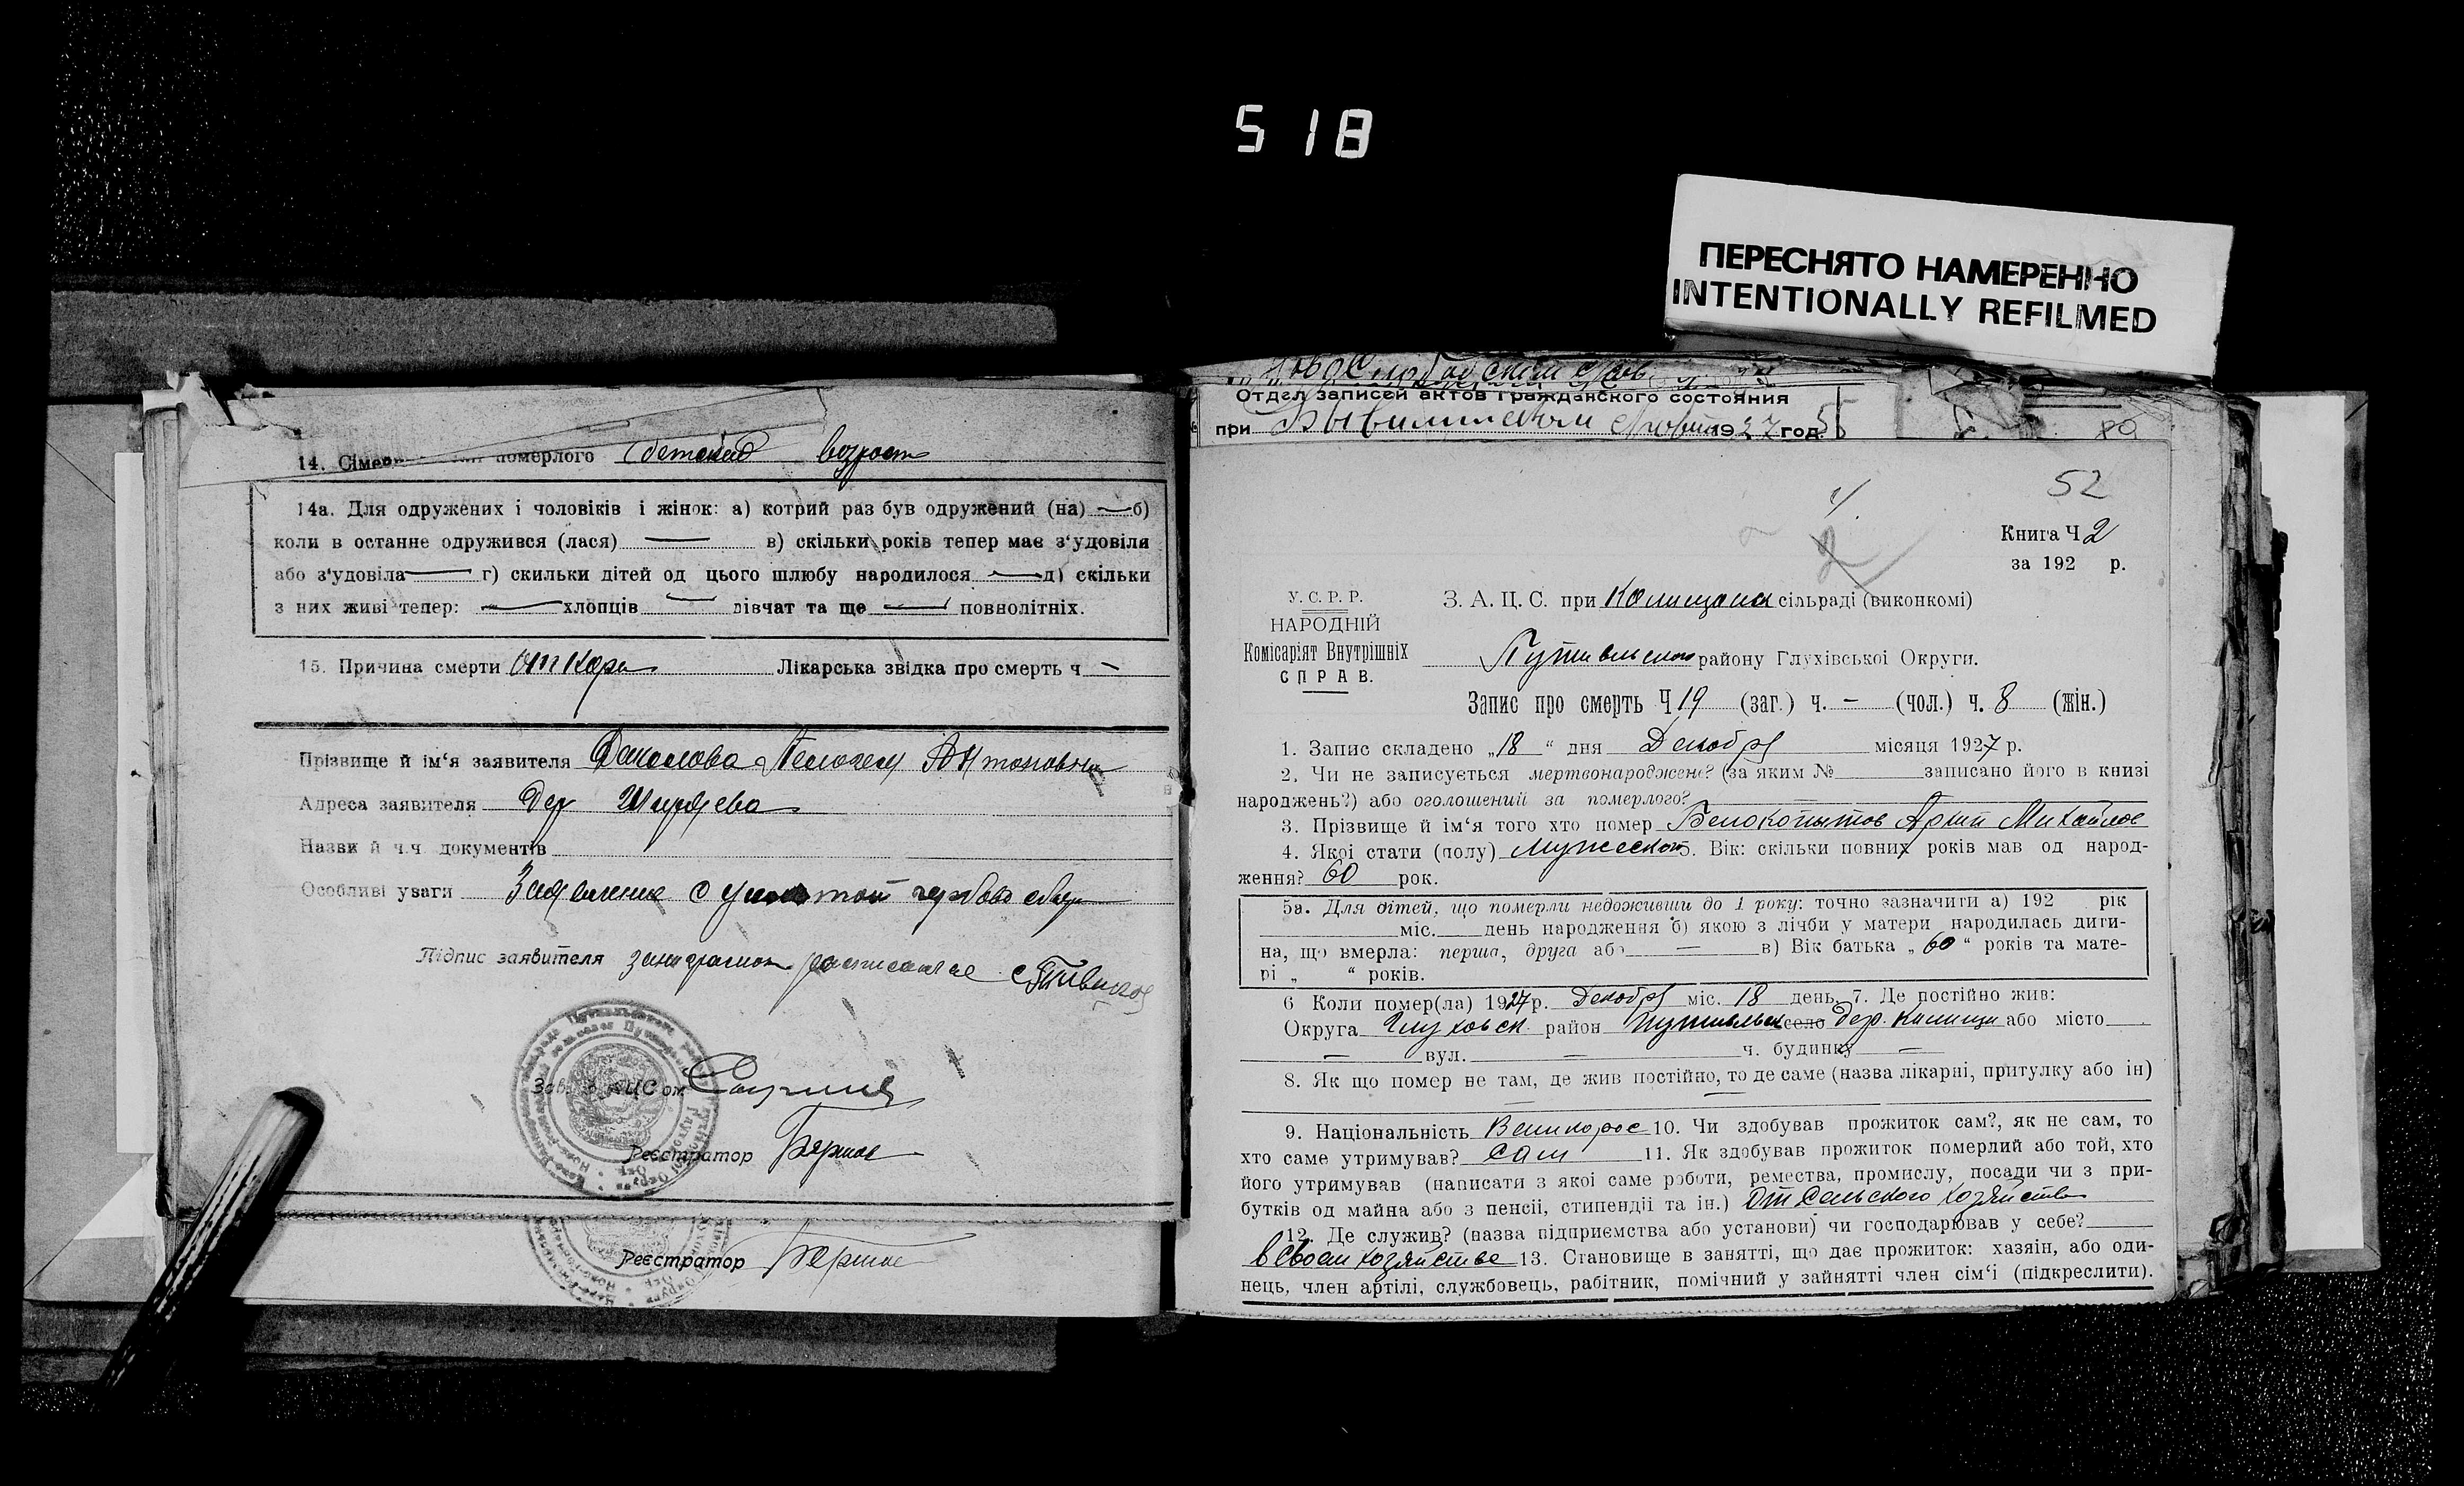 518
ПЕРЕСНЯТО НАМЕРЕННО
INTENTIONALLY REFILMED
14. померлого детский возраст
14а. Для одружених і чоловіків і жінок: а) котрий раз був одружений (на) — б)
коли в останне одружився (лася) — в) скільки років тепер має з'удовіля
або з'удовіла — г) скильки дітей од цього шлюбу народилося — д) скільки
з них живі тепер: — хлопців — дівчат та ще — повнолітніх.
15. Причина смерти от кори Лікарська звідка про смерть ч —
Прізвище й ім'я заявителя Антоновна
Адреса заявителя Дер Ширяево
Назви й ч.ч документів
Особливі уваги Заявление с гербово сбору
Підпис заявителя
Зав. ЗАЦСом
Реєстратор
Реєстратор
Отдел записей актов гражданского состояния
при 1927 год.
89
52
Книга Ч 2
за 192 р.
У. С. Р. Р.
НАРОДНІЙ
Комісаріят Внутрішніх
СПРАВ.
З. А. Ц. С. при сільраді (виконкомі)
Путивльского району Глухівської Округи.
Запис про смерть Ч 19 (заг.) ч. — (чол.) ч. 8 (жін.)
1. Запис складено „18“ дня Декабря місяця 1927 р.
2. Чи не записується мертвонароджене? (за яким № записано його в книзі
народжень?) або оголошений за померлого?
3. Прізвище й ім'я того хто помер Белокопытов Михайлов
4. Якої стати (полу) Мужеского 5. Вік: скільки повних років мав од народ-
ження? 60 рок.
5а. Для дітей, що померли недоживши до 1 року: точно зазначити а) 192 рік
міс. день народження б) якою з лічби у матери народилась дити-
на, що вмерла: перша, друга або — в) Вік батька „60“ років та мате-
рі „ “ років.
6 Коли помер(ла) 1927 р. Декабря міс. 18 день. 7. Де постійно жив:
Округа Глуховск район Путивльск село дер. або місто —
— вул. — ч. будинку —
8. Як що помер не там, де жив постійно, то де саме (назва лікарні, притулку або ін)
—
9. Національність Великорос 10. Чи здобував прожиток сам?, як не сам, то
хто саме утримував? сам 11. Як здобував прожиток померлий або той, хто
його утримував (написати з якої саме роботи, ремества, промислу, посади чи з при-
бутків од майна або з пенсії, стипендії та ін.) От сельского хозяйства
12. Де служив? (назва підприємства або установи) чи господарював у себе?
в своем хозяйстве 13. Становище в занятті, що дає прожиток: хазяін, або оди-
нець, член артілі, службовець, рабітник, помічний у зайнятті член сім'ї (підкреслити).